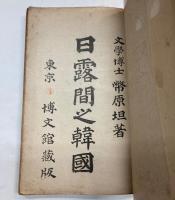 文學博士 幣原坦著
日露間之韓國
東京 博文館藏版